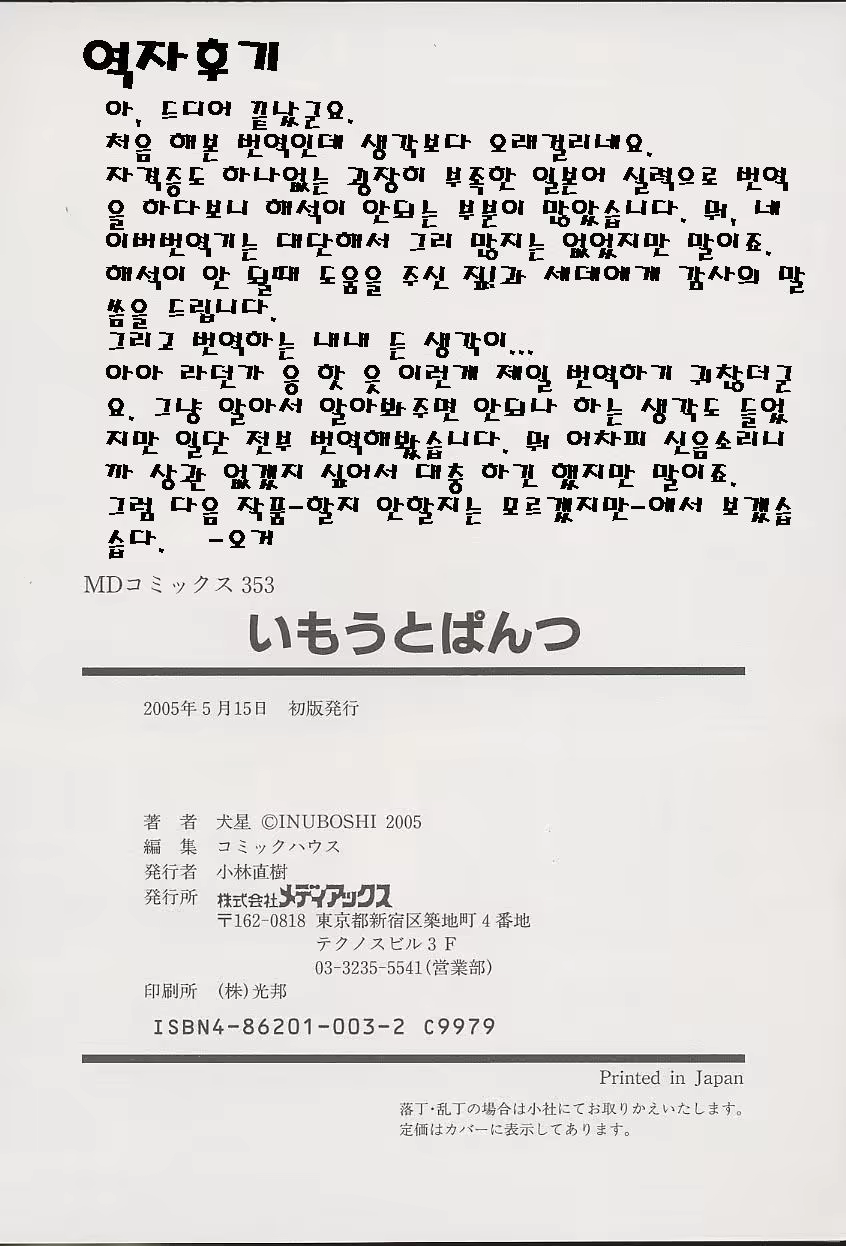 역자후기
아, 드디어 끝났군요.
처음 해본 번역인데 생각보다 오래걸리네요.
자격증도 하나없는 굉장히 부족한 일본어 실력으로 번역
을 하다보니 해석이 안되는 부분이 많았습니다. 뭐, 네
이버번역기는 대단해서 그리 많지는 없었지만 말이죠.
해석이 안 될때 도움을 주신 과 세데에게 감사의 말
씀을 드립니다.
그리고 번역하는 내내 든 생각이...
아아 라던가 응 핫 읏 이런게 제일 번역하기 귀찮더군
요. 그냥 알아서 알아봐주면 안되나 하는 생각도 들었
지만 일단 전부 번역해봤습니다. 뭐 어차피 신음소리니
까 상관 없겠지 싶어서 대충 하긴 했지만 말이죠.
그럼 다음 작품-할지 안할지는 모르겠지만-에서 보겠습
습다. -오거
MDコミックス 353
いもうとぱんつ
2005年5月15日 初版発行
著 者 犬星 ©INUBOSHI 2005
編 集 コミックハウス
発行者 小林直樹
発行所 株式会社メディアックス
〒162-0818 東京都新宿区築地町4番地
テクノスビル3F
03-3235-5541(営業部)
印刷所 (株)光邦
ISBN4-86201-003-2 C9979
Printed in Japan
落丁・乱丁の場合は小社にてお取りかえいたします。
定価はカバーに表示してあります。